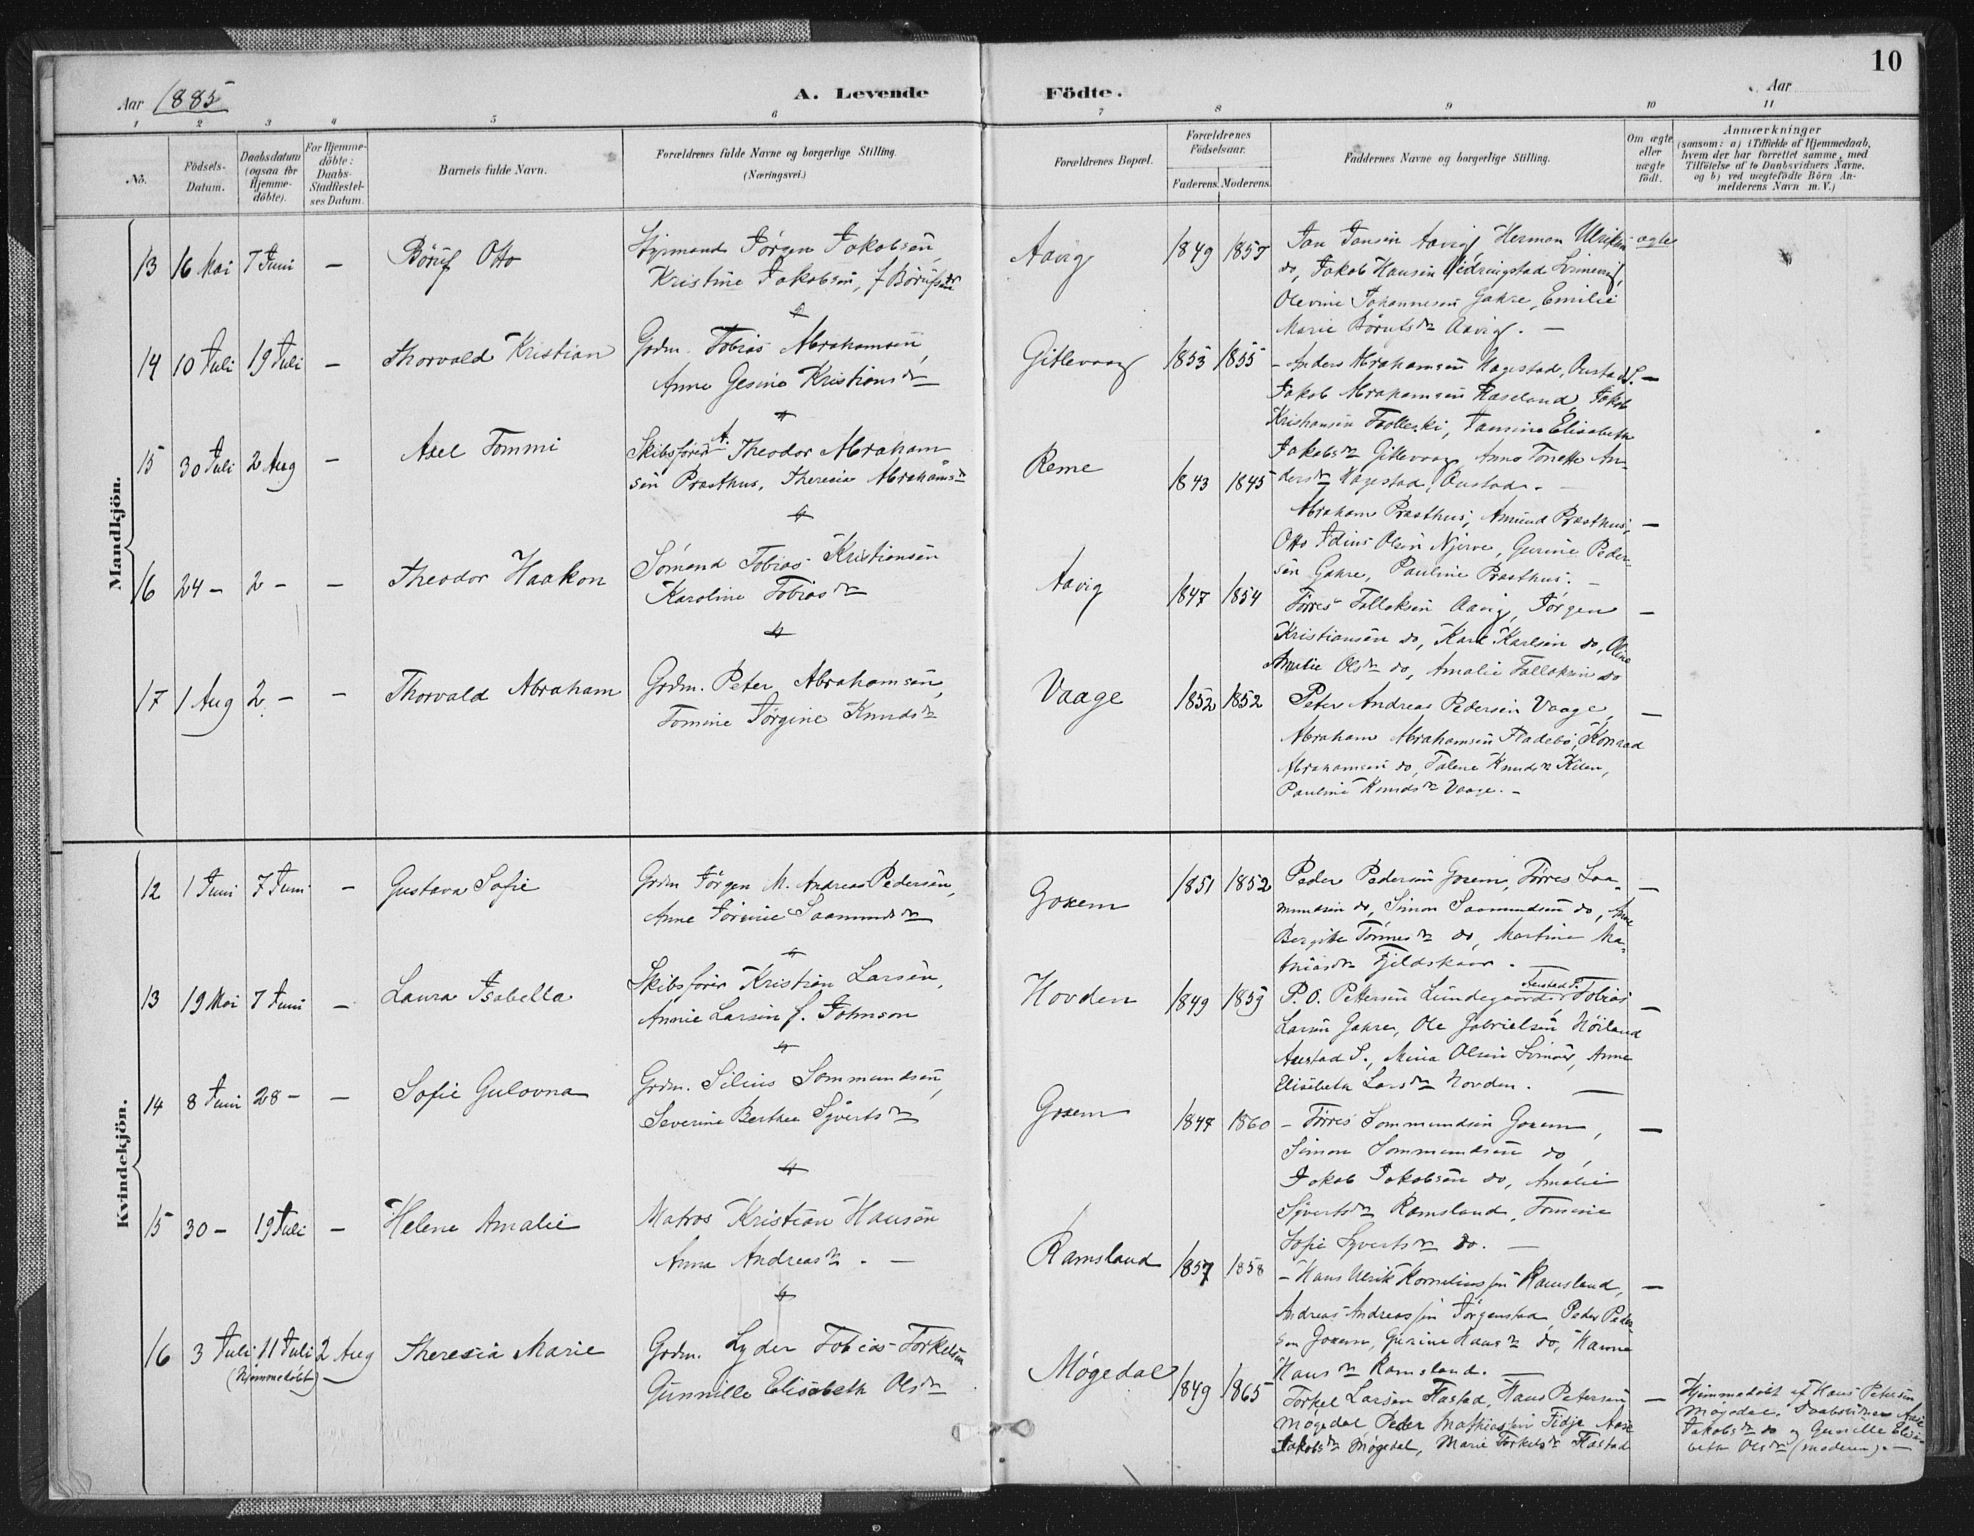 10
Aar 1885
A. Levende Födte.
Aar
1 2 3 4 5 6 7 8 9 10 11
No.
Födsels-Datum.
Daabsdatum (ogsaa for Hjemme-döbte).
For Hjemme-döbte: Daabs-Stadfæstel-ses Datum.
Barnets fulde Navn.
Forældrenes fulde Navne og borgerlige Stilling.
(Næringsvei.)
Forældrenes Bopæl.
Forældrenes Födselsaar.
Faderens. Moderens.
Faddernes Navne og borgerlige Stilling.
Om ægte eller uægte födt.
Anmærkninger
(saasom: a) i Tilfælde af Hjemmedaab,
hvem der har forrettet samme, med
Tilföielse af to Daabsvidners Navne,
og b) ved uægtefödte Börn An-
melderens Navn m. V.)
Mandkjön.
13 16 Mai 7 Juni — Böruf Otto
Styrmand Jörgen Jakobsen,
Kristine Jakobsen, f Börufsdtr
Aavig 1849 1857
Jan Jansen Aavig Herman Ulriksen
do, Jakob Hansen
Olevine Johannesen Gahre, Emilie
Marie Börufsdtr Aavig. —
ægte
14 10 Juli 19 Juli — Thorvald Kristian
Grdm. Tobias Abrahamsen,
Anne Gesine Kristiansdtr
Gitlevaag 1853 1855
- Anders Abrahamsen Hagestad, Austad S. —
Jakob Abrahamsen Haseland, Jakob
Kristiansen Tjolleski, Tansine Elisabeth
Jakobsdtr Gitlevaag, Anne Tonette An-
dersdtr Hagestad, Austad. —
15 30 Juli 2 Aug — Axel Tommi
Skibsförer A. Theodor Abraham
sen Præsthus, Theresia Abrahamsdtr
Reme 1843 1845
Abraham Præsthus, Amund Præsthus, —
Otto Idius Olsen Njerve, Gurine Peder-
sen Gahre, Pauline Præsthus. —
16 24 — 2 — — Theodor Haakon
Sömand Tobias Kristiansen
Karoline Tobiasdtr
Aavig 1847 1854
Törres Tolleksen Aavig, Jörgen —
Kristiansen do, Karl Karlsen do, Oline
Amalie Olsdtr do, Amalie Tolleksen do
17 1 Aug 2 — — Thorvald Abraham
Grdm. Peter Abrahamsen,
Tomine Jörgine Knudsdtr
Vaage 1852 1852
Peter Andreas Pedersen Vaage, —
Abraham Abrahamsen Fladebö, Konrad
Abrahamsen do, Talene Knudsdtr Kilen,
Pauline Knudsdtr Vaage. —
Kvindekjön.
12 1 Juni 7 Juni — Gustava Sofie
Grdm Jörgen M. Andreas Pedersen,
Anne Jörine Saamundsdtr
Goxem 1851 1852
Peder Pedersen Goxem, Törres Saa- —
mundsen do, Simon Saamundsen do, Anne
Bergitte Tönnesdtr do, Martine Ma-
thiasdtr Fjeldskaar. —
13 19 Mai 7 Juni — Laura Isabella
Skibsförer Kristian Larsen,
Annie Larsen f. Johnson
Hovden 1849 1859
P. O. Pettersen Lundegaarden Austad S. Tobias —
Larsen Gahre, Ole Gabrielsen Höiland
Austad S., Mina Olsen Svinör, Anne
Elisabeth Larsdtr Hovden. —
14 8 Juni 28 — — Sofie Gulovna
Grdm. Silius Sommundsen,
Severine Berthea Syvertsdtr
Goxem 1847 1860
- Törres Sommundsen Goxem, —
Simon Sommundsen do,
Jakob Jakobsen do, Amalie
Syvertsdtr Ramsland, Tomine
Sofie Syvertsdtr do. —
15 30 — 19 Juli — Helene Amalie
Matros Kristian Hansen
Anna Andreasdtr. —
Ramsland 1857 1858
- Hans Ulrik Korneliussen Ramsland, —
Andreas Andreassen Jörgenstad, Peter Peder-
sen Goxem, Gurine Hansdtr do, Hanne
Hansdtr Ramsland. —
16 3 Juli 11 Juli (Hjemmedöbt) 2 Aug Theresia Marie
Grdm. Lyder Tobias Torkelsen
Gunnille Elisabeth Olsdtr
Mögedal 1849 1865
Torkel Larsen Fastad, Hans Petersen —
Mögedal, Peder Mathiassen Fidje, Aase
Jakobsdtr Mögedal, Marie Torkelsdtr Fastad
Hjemmedöbt af Hans Petersen
Mögedal. Daabsvidner Aase
Jakobsdtr do og Gunille Elisa-
beth Olsdtr (moderen). —